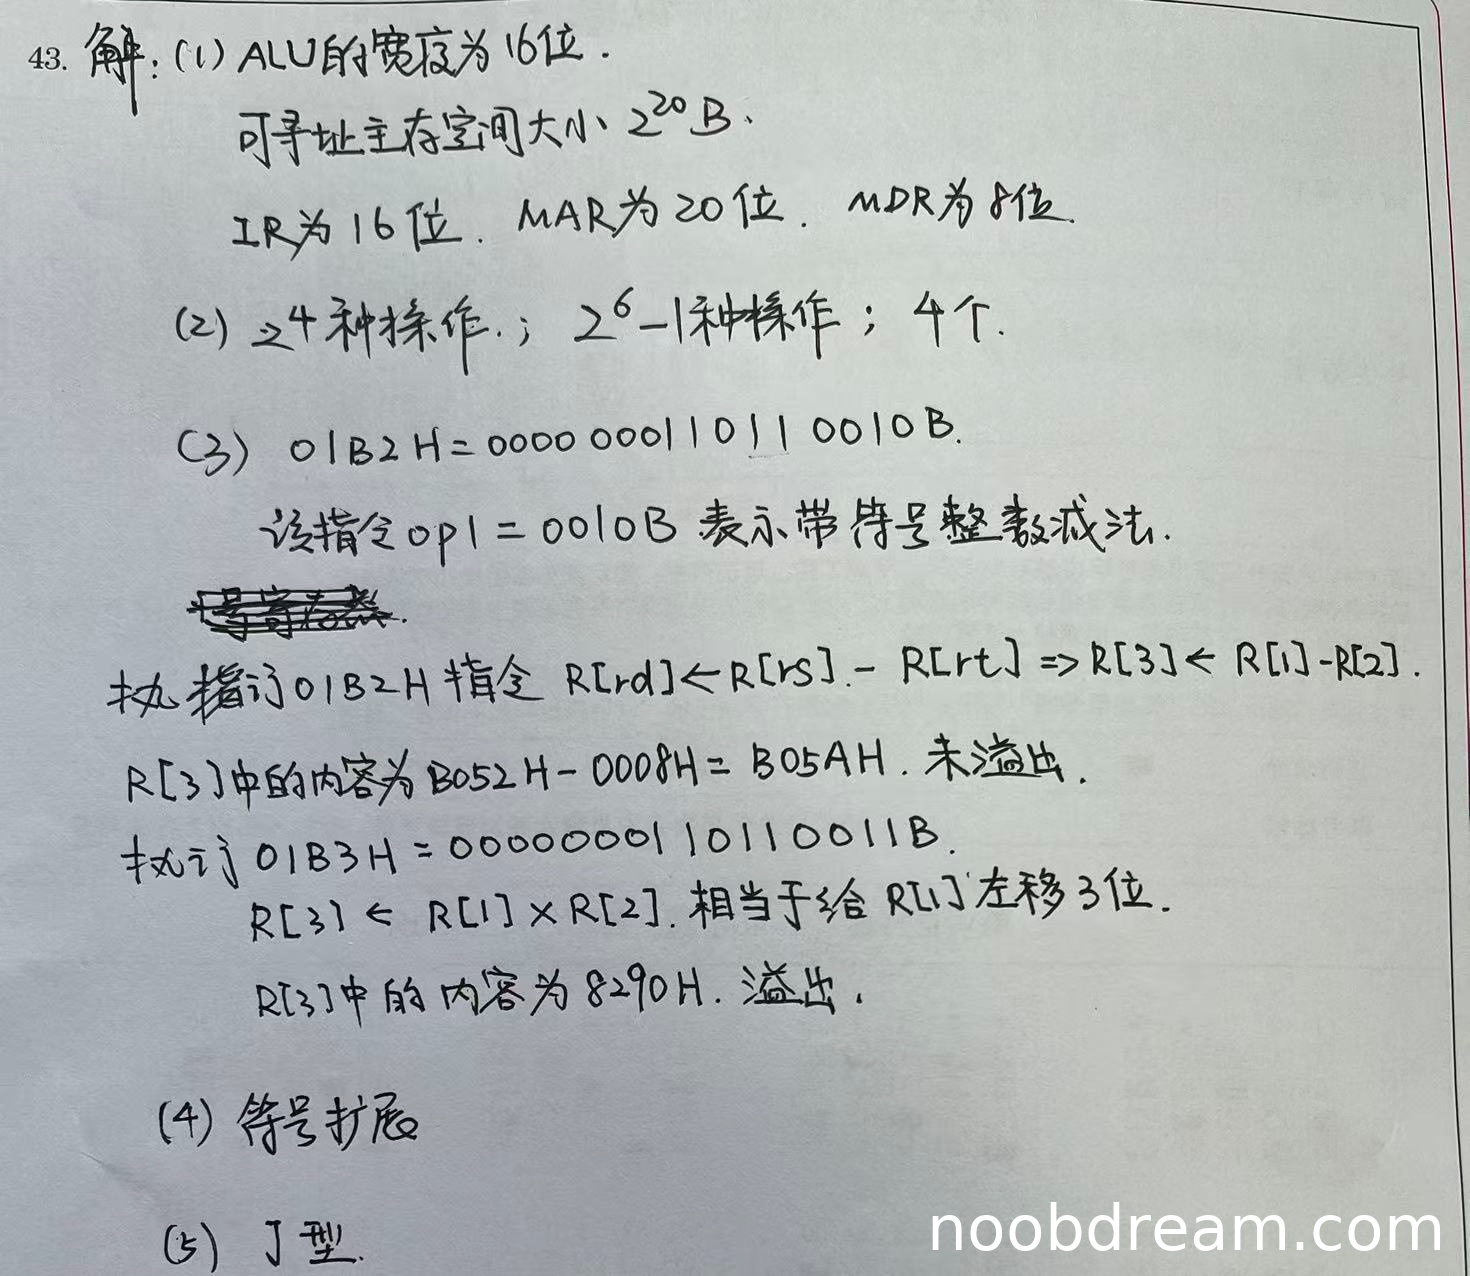 43. 解:(1) ALU的宽度为16位.
可寻址主存空间大小 2²⁰B.
IR为16位. MAR为20位. MDR为8位.
(2) 2⁴种操作.; 2⁶-1种操作; 4个.
(3) 01B2H=0000 000110110010B.
该指令op1=0010B 表示带符号整数减法.
执行01B2H指令 R[rd]←R[rs]-R[rt] => R[3]← R[1]-R[2].
R[3]中的内容为B052H-0008H=B05AH. 未溢出.
执行01B3H=0000000110110011B.
R[3]← R[1]×R[2]. 相当于给R[1]左移3位.
R[3]中的内容为8290H. 溢出.
(4) 符号扩展
(5) J型.
noobdream.com